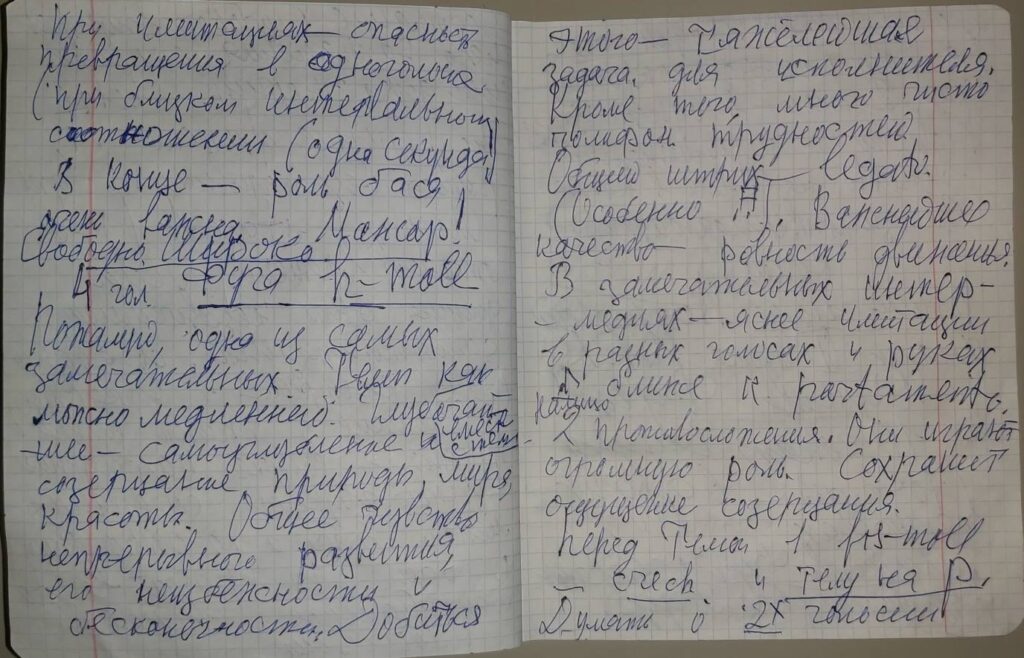 При имитациях — опасность
превращения в одноголосие
(при близком интервальном
соотношении (одна секунда!)
В конце — роль баса
очень важна. Мансар!
Свободно. Широко
4 гол. Фуга h-moll
Пожалуй, одна из самых
замечательных. Темп как
можно медленней. Глубочай-
шее — самоуглубление и вместе с тем
созерцание природы, мира,
красоты. Общее чувство
непрерывного развития,
его неизбежности и
бесконечности. Добиться
этого — тяжелейшая
задача для исполнителя.
Кроме того, много чисто
полифон. трудностей.
Общий штрих — legato.
(Особенно). Важнейшее
качество — ровность движенья.
В замечательных интер-
- медиях — яснее имитации
в разных голосах и руках
ближе к portamento.
2 противосложения. Они играют
огромную роль. Сохранит
ощущение созерцания.
Перед темой в fis-moll
— cresc и тему на p.
Думать о 2х голосии